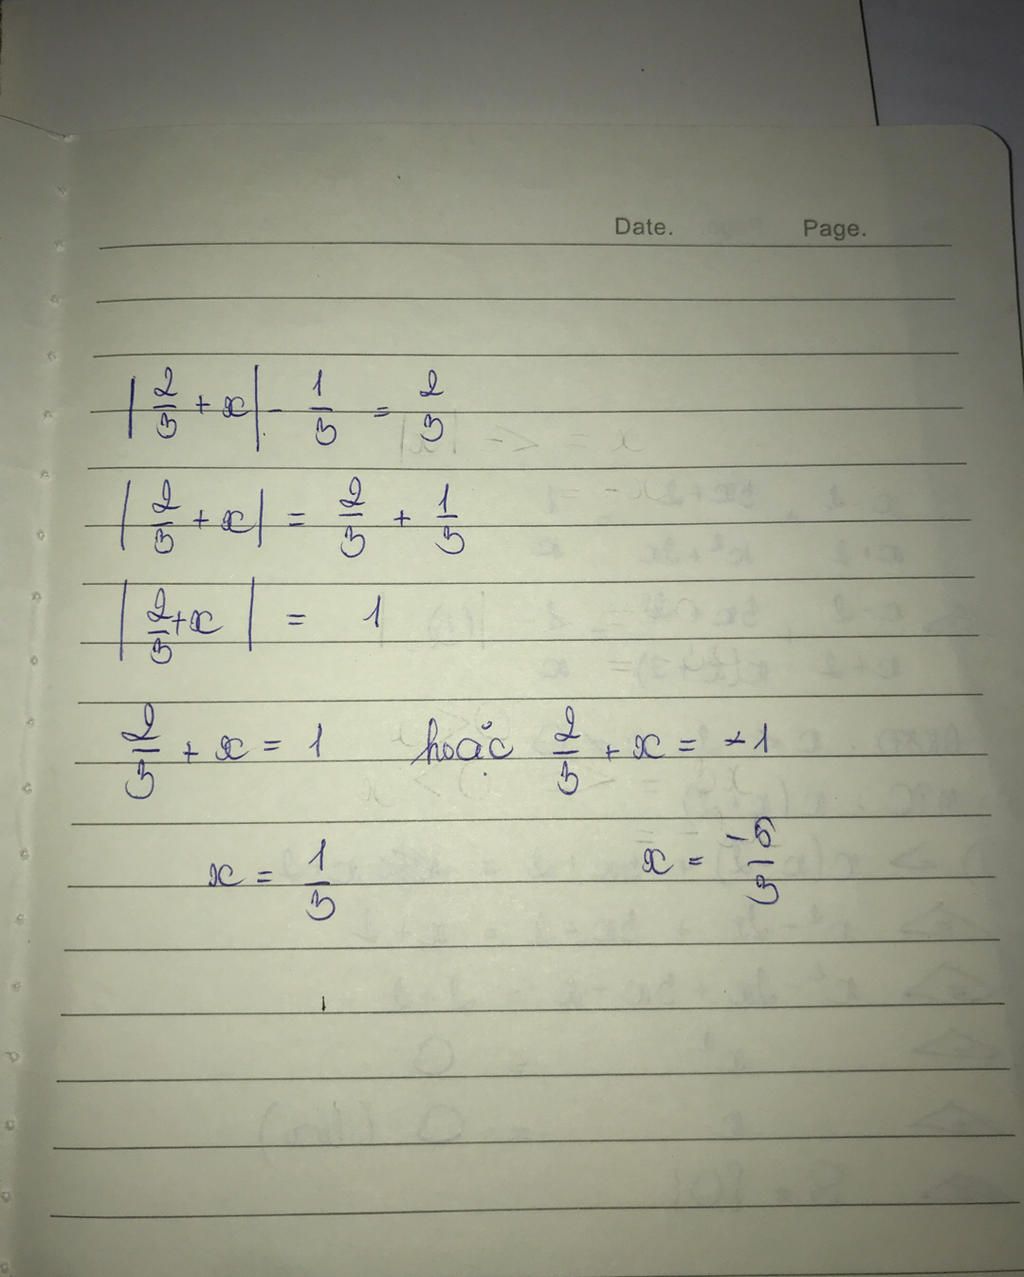 Date. Page.
|2/3 + x| - 1/3 = 2/3
|2/3 + x| = 2/3 + 1/3
|2/3 + x| = 1
2/3 + x = 1 hoặc 2/3 + x = -1
x = 1/3 x = -5/3